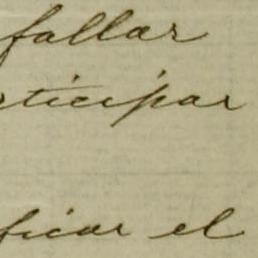 fallar
rticipar
ficar el